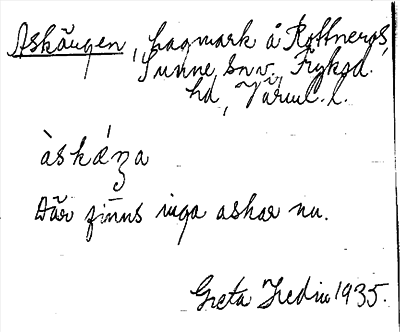 Askängen, hagmark å Rottneros,
Sunne sn v, Fryksd.
hd, Värml. l.
àskǽŋa
Där finns inga askar nu.
Greta Hedin 1935.